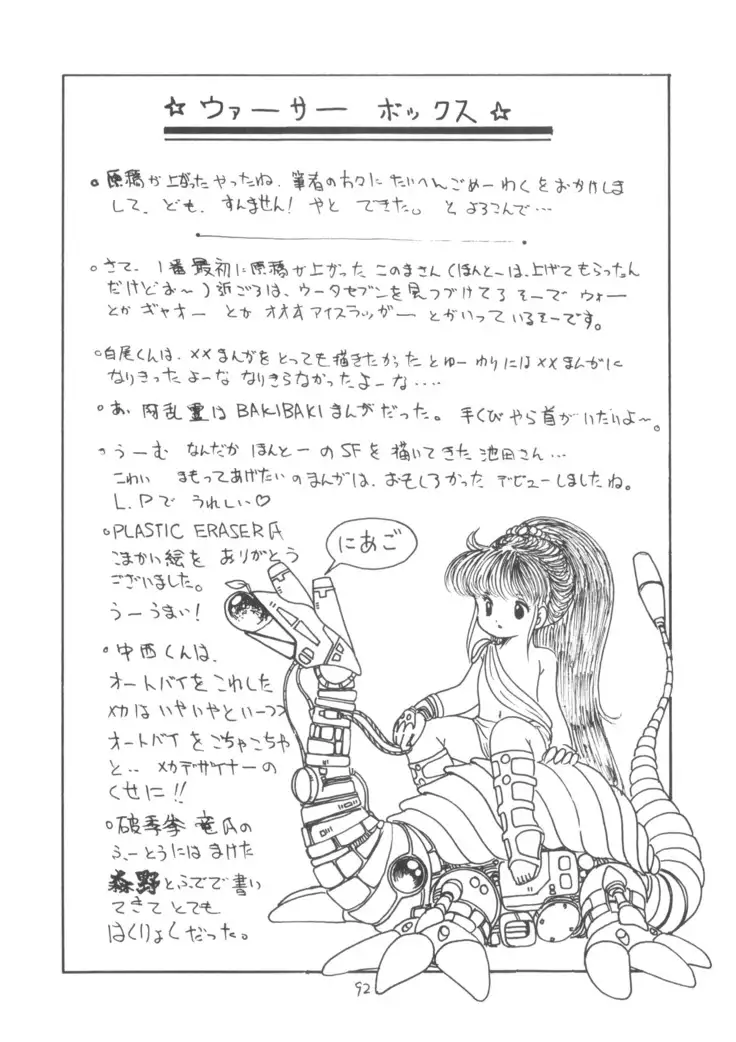 ☆ ウァーサー ボックス ☆
。原稿が上がった やったね、筆者の方々に たいへんごめーわくをおかけしま
して、ども、すんません! やと できた。と よろこんで…
。さて、1番最初に原稿が上がった このまさん(ほんとーは、上げてもらったん
だけどお〜)近ごろは、ウータセブンを見つづけてる そーで ウォー
とか ギャオー とか オオオアイスラッガー とかいって いるそーです。
。白尾くんは、××まんがをとっても描きたかったとゆー ゆりには××まんがに
なりきったよーな なりきらなかったよーな‥‥
。あ、腐乱霊は BAKIBAKIまんがだった。手くびやら首がいたいよ〜。
。うーむ なんだか ほんとーのSFを描いてきた池田さん…
こわい まもってあげたいのまんがは、おもしろかった デビューしましたね。
L.Pで うれしい♡
。PLASTIC ERASER氏
こまかい絵を ありがとう
ございました。
うーうまい!
にあご
。中西くんは、
オートバイをこれした
メカはいやいやといーつつ
オートバイをごちゃごちゃ
と‥ メカデザイナーの
くせに!!
。破季拳 竜氏の
ふーとうには まけた
森野とふでで書い
てきて とても
はくりょくだった。
92